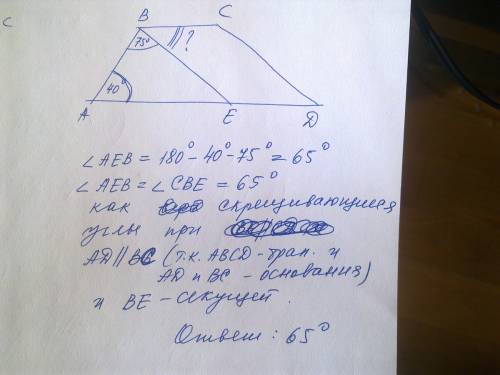 С
B C
75° ?
40°
A E D
∠AEB = 180° - 40° - 75° = 65°
∠AEB = ∠CBE = 65°
как скрещивающиеся
углы при
AD || BC (т.к. ABCD - трап. и
AD и BC - основания)
и BE - секущей.
Ответ: 65°